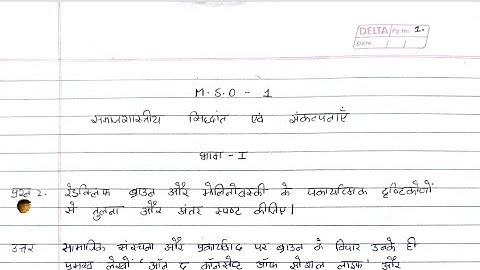 DELTA Pg No. 1.
Date
M.S.O - 1
समाजशास्त्रीय सिद्धांत एवं संकल्पनाएँ
भाग - I
प्रश्न 2. रेडक्लिफ ब्राउन और मेलिनोवस्की के प्रकार्यात्मक दृष्टिकोणों
से तुलना और अंतर स्पष्ट कीजिए।
उत्तर सामाजिक संरचना और प्रकार्यवाद पर ब्राउन के विचार उनके ही
प्रमुख लेखों 'ऑन द कॉनसेप्ट ऑफ सोशल लाइफ' और